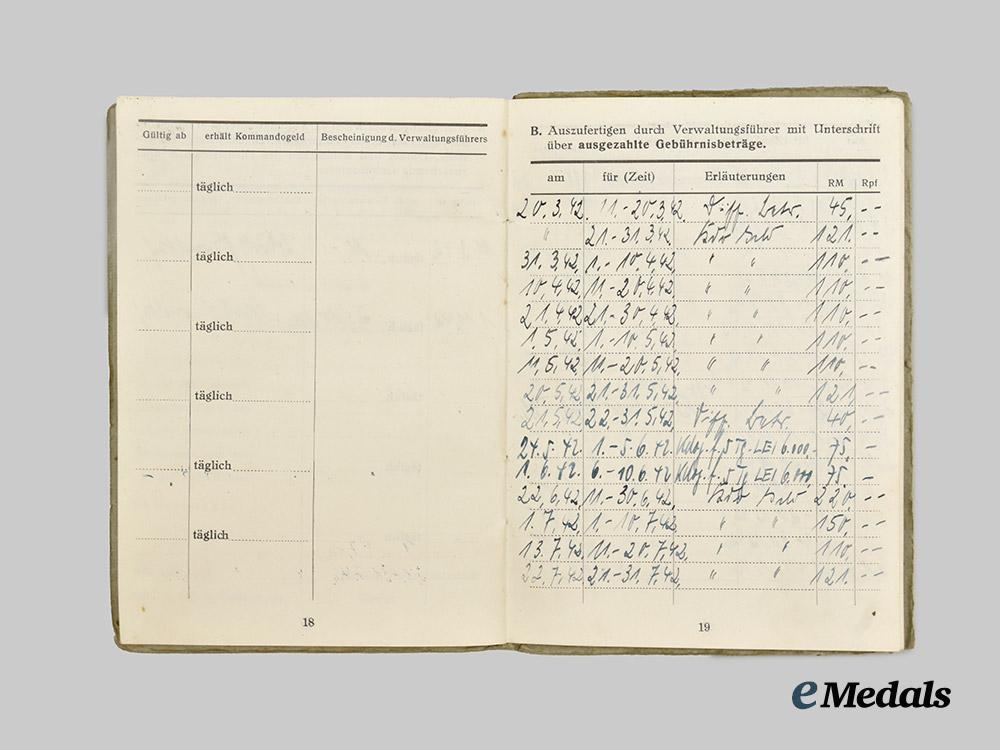 Gültig ab erhält Kommandogeld Bescheinigung d. Verwaltungsführers
täglich
täglich
täglich
täglich
täglich
täglich
18
B. Auszufertigen durch Verwaltungsführer mit Unterschrift
über ausgezahlte Gebührnisbeträge.
am für (Zeit) Erläuterungen RM Rpf
20.3.42. 11.-20.3.42. Diff. Betr. 45,--
" 21.-31.3.42. Kdo Geld 121.--
31.3.42. 1.-10.4.42. " " 110.--
10.4.42. 11.-20.4.42. " " 110.--
21.4.42. 21.-30.4.42. " " 110.--
1.5.42. 1.-10.5.42. " " 110.--
11.5.42. 11.-20.5.42. " " 110.--
20.5.42. 21.-31.5.42. " " 121.--
21.5.42. 22.-31.5.42. Diff. Betr. 40.--
24.5.42. 1.-5.6.42. f. 5 Tg. LEI 6.000,- 75. -
1.6.42. 6.-10.6.42 f. 5 Tg LEI 6.000, 75. -
22.6.42. 11.-30.6.42. Kdo Geld 220.--
1.7.42. 1.-10.7.42. " " 150.--
13.7.42. 11.-20.7.42. " " 110.--
22.7.42. 21.-31.7.42. " " 121.--
19
eMedals